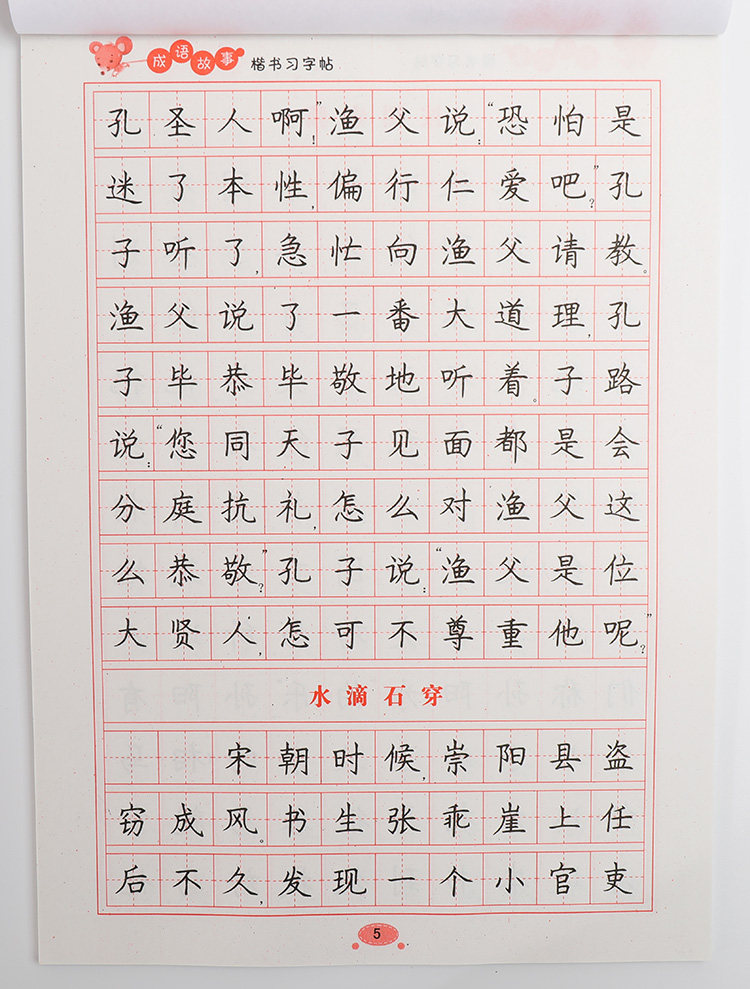 成语故事 楷书习字帖
孔圣人啊!”渔父说:“恐怕是
迷了本性,偏行仁爱吧?”孔
子听了,急忙向渔父请教。
渔父说了一番大道理,孔
子毕恭毕敬地听着。子路
说:“您同天子见面都是会
分庭抗礼,怎么对渔父这
么恭敬?”孔子说:“渔父是位
大贤人,怎可不尊重他呢?”
水滴石穿
宋朝时候,崇阳县盗
窃成风。书生张乖崖上任
后不久,发现一个小官吏
5